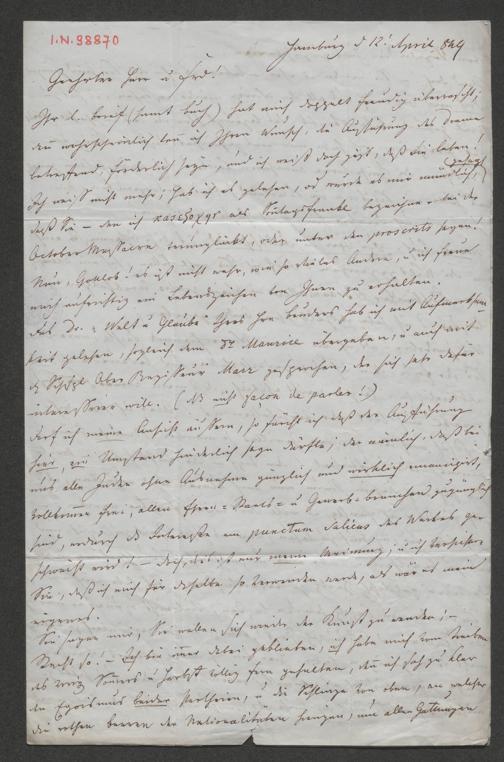 I.N. 98870
Hamburg d 12t April 849
Geehrter Herr u Frd!
Ihr l. Brief (samt Buch) hat mich doppelt freudig überrascht;
denn wahrscheinlich kann ich Ihrem Wunsch, die Aufführung des Drama
betreffend, förderlich seyn, und ich weiß doch jetzt, daß Sie leben!
Ich weiß nicht mehr, hab ich es gelesen, od wurde es mir mündlich gesagt
daß Sie – den ich als Frankl bezeichne – bei der
October Massacre verunglückt, oder unter den proscrits seyen!
Nun, Gottlob! es ist nicht wahr, wie so vieles Andere, u ich freue
mich aufrichtig ein Lebenszeichen von Ihnen zu erhalten.
Das Dr. "Welt u Glaube" Ihres Hrn Bruders hab ich mit Aufmerksam-
keit gelesen, sogleich dem Dr Maurice übergeben, u auch mit
d Ober Regisseur Marr gesprochen, der sich sehr dafür
interessiren will. (Ist nicht façon de parler!)
Darf ich meine Ansicht äussern, so fürcht ich daß der Aufführung
hier, ein Umstand hinderlich seyn dürfte; der nämlich, daß bei
uns alle Juden ohne Ausnahme gänzlich und wirklich emancipirt,
vollkommen frei, allen Ehren- Staats- u Gewerb-branchen zugänglich
sind, wodurch das Interesse am punctum Salicus des Werkes ge-
schwächt wird! – doch, das ist nur meine Meinung; u ich versichre
Sie, daß ich mich für dasselbe so verwenden werde, als wär es mein
eigenes.
Sie sagen mir, Sie wollen sich wieder der Kunst zu wenden; –
Recht so! – Ich bin immer dabei geblieben, ich habe mich vom Treiben
des vorig Sommers u Herbst völlig fern gehalten, denn ich sah zu klar
den Egoismus beider Partheien, u die Schlinge von oben, an welcher
die rothen Beeren der Nationalitäten hingen, um allen Gattungen